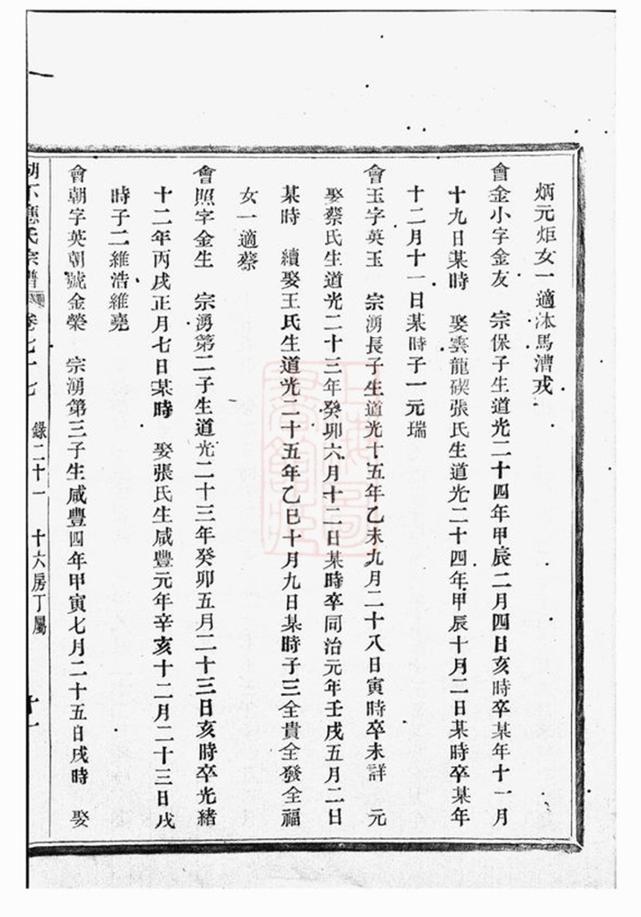 炳元炬女一適沐馬漕戎
會金小字金友　宗保子生道光二十四年甲辰二月四日亥時卒某年十一月
十九日某時　娶雲龍碶張氏生道光二十四年甲辰十月二日某時卒某年
十二月十一日某時子一元瑞
會玉字英玉　宗湧長子生道光十五年乙未九月二十八日寅時卒未詳　元
娶蔡氏生道光二十三年癸卯六月十二日某時卒同治元年壬戌五月二日
某時　續娶王氏生道光二十五年乙巳十月九日某時子三全貴全發全福
女一適蔡
會照字金生　宗湧第二子生道光二十三年癸卯五月二十三日亥時卒光緒
十二年丙戌正月七日某時　娶張氏生咸豐元年辛亥十二月二十三日戌
時子二維浩維堯
會朝字英朝號金榮　宗湧第三子生咸豐四年甲寅七月二十五日戌時　娶
應氏宗譜　卷七十七　錄二十一　十六房丁屬　十一